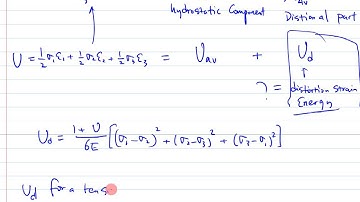 Hydrostatic Component Distional part
U = 1/2 σ₁ε₁ + 1/2 σ₂ε₂ + 1/2 σ₃ε₃ = Uav + Ud
? = distortion strain
Energy
Ud = (1+υ)/6E [(σ₁-σ₂)² + (σ₂-σ₃)² + (σ₃-σ₁)²]
Ud for a tens